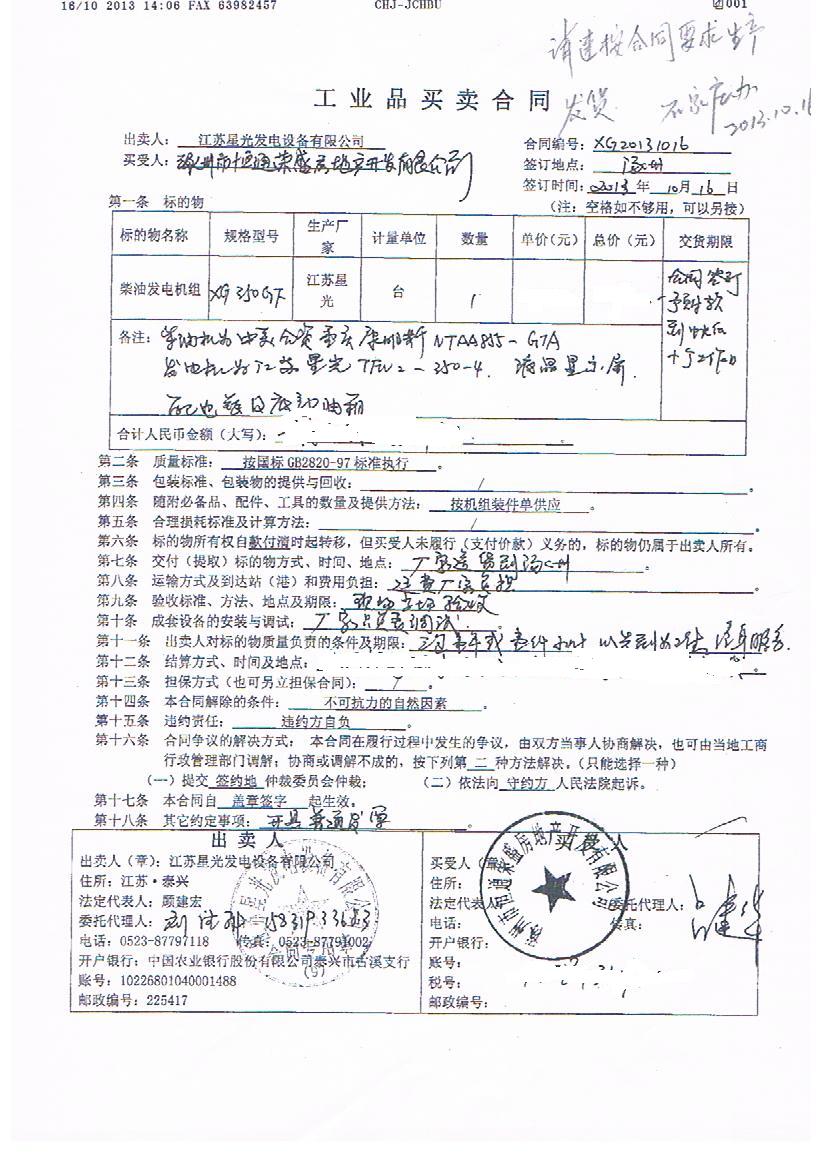 16/10 2013 14:06 FAX 63982457 CHJ-JCHBU 001
请速按合同要求生产
发货. 石家庄办
2013.10.16
工业品买卖合同
出卖人: 江苏星光发电设备有限公司
买受人: 涿州市恒通荣盛房地产开发有限公司
合同编号: XG20131016
签订地点: 涿州
签订时间: 2013 年 10 月 16 日
第一条 标的物 (注: 空格如不够用, 可以另接)
标的物名称 规格型号 生产厂家 计量单位 数量 单价(元) 总价(元) 交货期限
柴油发电机组 XG350GF 江苏星光 台 1
合同签订预付款到帐后十个工作日
备注: 柴油机为中美合资重庆康明斯 NTAA855-G7A
发电机为江苏星光 TFW2-350-4. 液晶显示屏.
配电瓶及底部油箱
合计人民币金额(大写):
第二条 质量标准: 按国标 GB2820-97 标准执行 。
第三条 包装标准、包装物的提供与回收: / 。
第四条 随附必备品、配件、工具的数量及提供方法: 按机组装件单供应 。
第五条 合理损耗标准及计算方法: / 。
第六条 标的物所有权自款付清时起转移, 但买受人未履行(支付价款)义务的, 标的物仍属于出卖人所有。
第七条 交付(提取)标的物方式、时间、地点: 厂家送货到涿州 。
第八条 运输方式及到达站(港)和费用负担: 运费厂家负担 。
第九条 验收标准、方法、地点及期限: 现场当场验收 。
第十条 成套设备的安装与调试: 厂家负责调试 。
第十一条 出卖人对标的物质量负责的条件及期限: 三包壹年或壹仟小时 以先到为准 终身服务.
第十二条 结算方式、时间及地点: 。
第十三条 担保方式(也可另立担保合同): / 。
第十四条 本合同解除的条件: 不可抗力的自然因素 。
第十五条 违约责任: 违约方自负 。
第十六条 合同争议的解决方式: 本合同在履行过程中发生的争议, 由双方当事人协商解决, 也可由当地工商
行政管理部门调解; 协商或调解不成的, 按下列第 二 种方法解决。(只能选择一种)
(一)提交 签约地 仲裁委员会仲裁; (二)依法向 守约方 人民法院起诉。
第十七条 本合同自 盖章签字 起生效。
第十八条 其它约定事项: 开具普通发票 。
出卖人
出卖人(章): 江苏星光发电设备有限公司
住所: 江苏·泰兴
法定代表人: 顾建宏
委托代理人:
电话: 0523-87797118 传真: 0523-87791002
开户银行: 中国农业银行股份有限公司泰兴市古溪支行
账号: 10226801040001488
邮政编号: 225417
买受人
买受人
住所:
法定代表人 委托代理人:
电话: 传真:
开户银行:
账号:
税号:
邮政编号:
涿州市恒通荣盛房地产开发有限公司
(9)